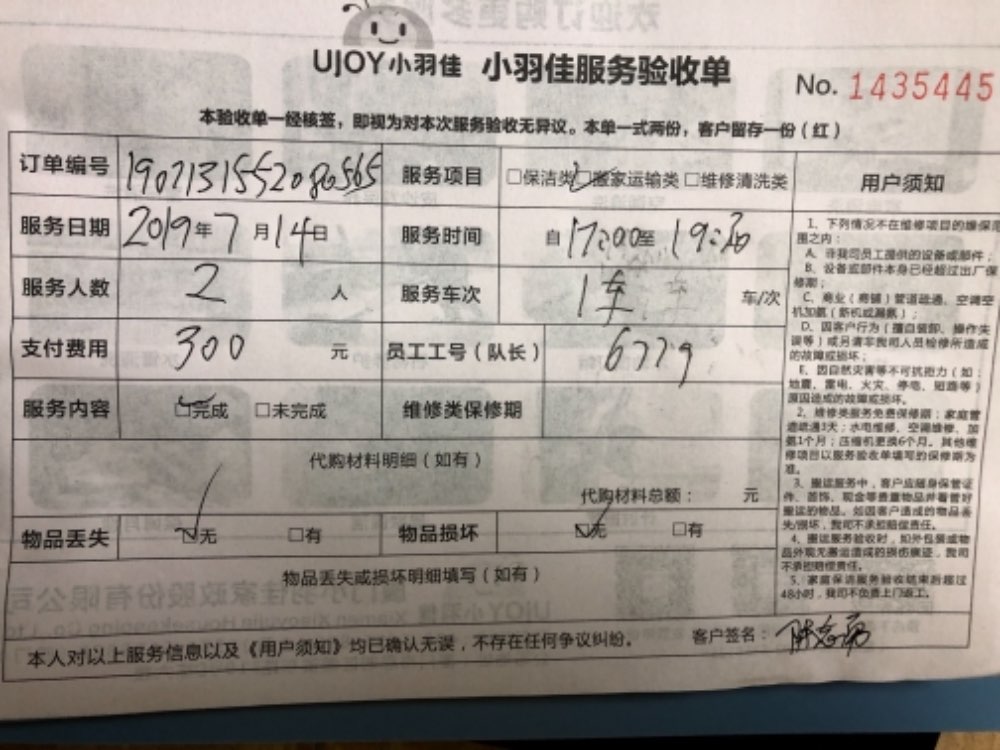 UJOY小羽佳 小羽佳服务验收单
No. 1435445
本验收单一经核签，即视为对本次服务验收无异议。本单一式两份，客户留存一份（红）
订单编号 1907131552080565 服务项目 □保洁类 □搬家运输类 □维修清洗类
服务日期 2019年7月14日 服务时间 自17:00至19:20
服务人数 2 人 服务车次 1车 车/次
支付费用 300 元 员工工号（队长） 6779
服务内容 □完成 □未完成 维修类保修期
代购材料明细（如有）
代购材料总额： 元
物品丢失 □无 □有 物品损坏 □无 □有
物品丢失或损坏明细填写（如有）
本人对以上服务信息以及《用户须知》均已确认无误，不存在任何争议纠纷。 客户签名：
用户须知
1、下列情况不在维修项目的维保范
围之内：
A、非我司员工提供的设备或部件；
B、设备或部件本身已经超过出厂保
修期；
C、商业（商铺）管道疏通、空调空
机加氨（新机或漏氨）；
D、因客户行为（擅自装卸、操作失
误等）或另请非我司人员检修所造成
的故障或损坏；
E、因自然灾害等不可抗拒力（如：
地震、雷电、火灾、停电、短路等）
原因造成的故障或损坏。
2、维修类服务免费保修期：家庭管
道疏通3天；水电维修、空调维修、加
氨1个月；压缩机更换6个月。其他维
修项目以服务验收单填写的保修期为
准。
3、搬运服务中，客户应随身保管证
件、首饰、现金等贵重物品并看管好
搬运的物品。如因客户造成的物品丢
失/损坏，我司不承担赔偿责任。
4、搬运服务验收时，如外包装或物
品外观无搬运造成的损伤痕迹，我司
不承担赔偿责任。
5、家庭保洁服务验收结束后超过
48小时，我司不负责上门返工。